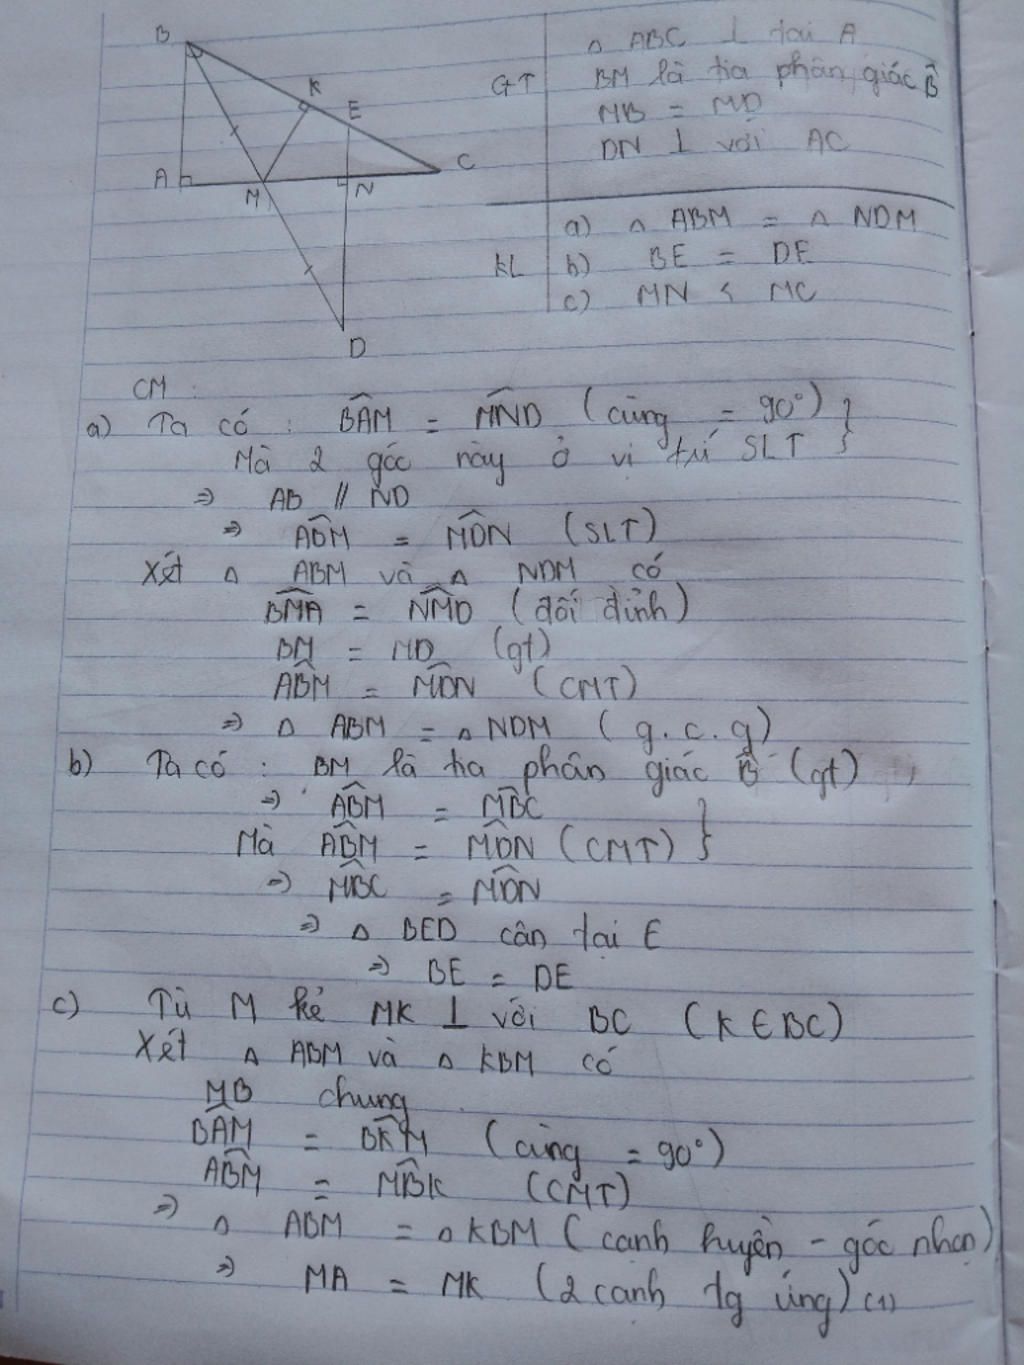 B
K
E
C
A
M
N
D
GT
△ ABC ⊥ tại A
BM là tia phân giác B̂
MB = MD
DN ⊥ với AC
KL
a) △ ABM = △ NDM
b) BE = DE
c) MN < MC
CM :
a) Ta có : BÂM = MN̂D (cùng = 90°) }
Mà 2 góc này ở vị trí SLT
⇒ AB // ND
⇒ AB̂M = MD̂N (SLT)
Xét △ ABM và △ NDM có
BM̂A = NM̂D (đối đỉnh)
BM = MD (gt)
AB̂M = MD̂N (CMT)
⇒ △ ABM = △ NDM (g.c.g)
b) Ta có : BM là tia phân giác B̂ (gt)
⇒ AB̂M = MB̂C }
Mà AB̂M = MD̂N (CMT)
⇒ MB̂C = MD̂N
⇒ △ BED cân tại E
⇒ BE = DE
c) Từ M kẻ MK ⊥ với BC (K ∈ BC)
Xét △ ABM và △ KBM có
MB chung
BÂM = BK̂M (cùng = 90°)
AB̂M = MB̂K (CMT)
⇒ △ ABM = △ KBM (cạnh huyền - góc nhọn)
⇒ MA = MK (2 cạnh tg ứng) (1)